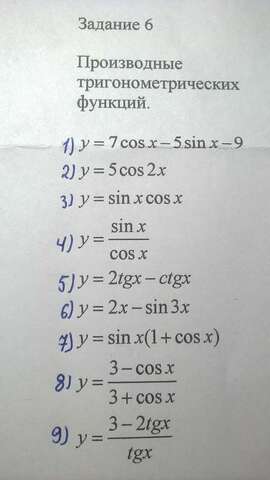 Задание 6
Производные
тригонометрических
функций.
1) y = 7 cos x − 5 sin x − 9
2) y = 5 cos 2x
3) y = sin x cos x
4) y = sin x / cos x
5) y = 2tgx − ctgx
6) y = 2x − sin 3x
7) y = sin x(1 + cos x)
8) y = (3 − cos x) / (3 + cos x)
9) y = (3 − 2tgx) / tgx